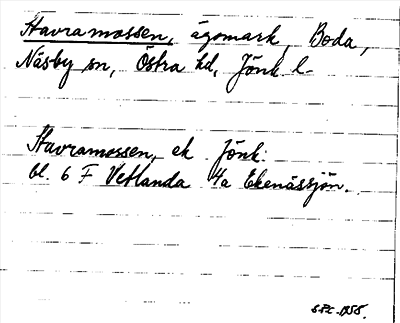 Stavramossen, ägomark, Boda,
Näsby sn, Östra hd, Jönk l.
Stavramossen, ek Jönk.
bl. 6 F Vetlanda 4a Ekenässjön.
1955.